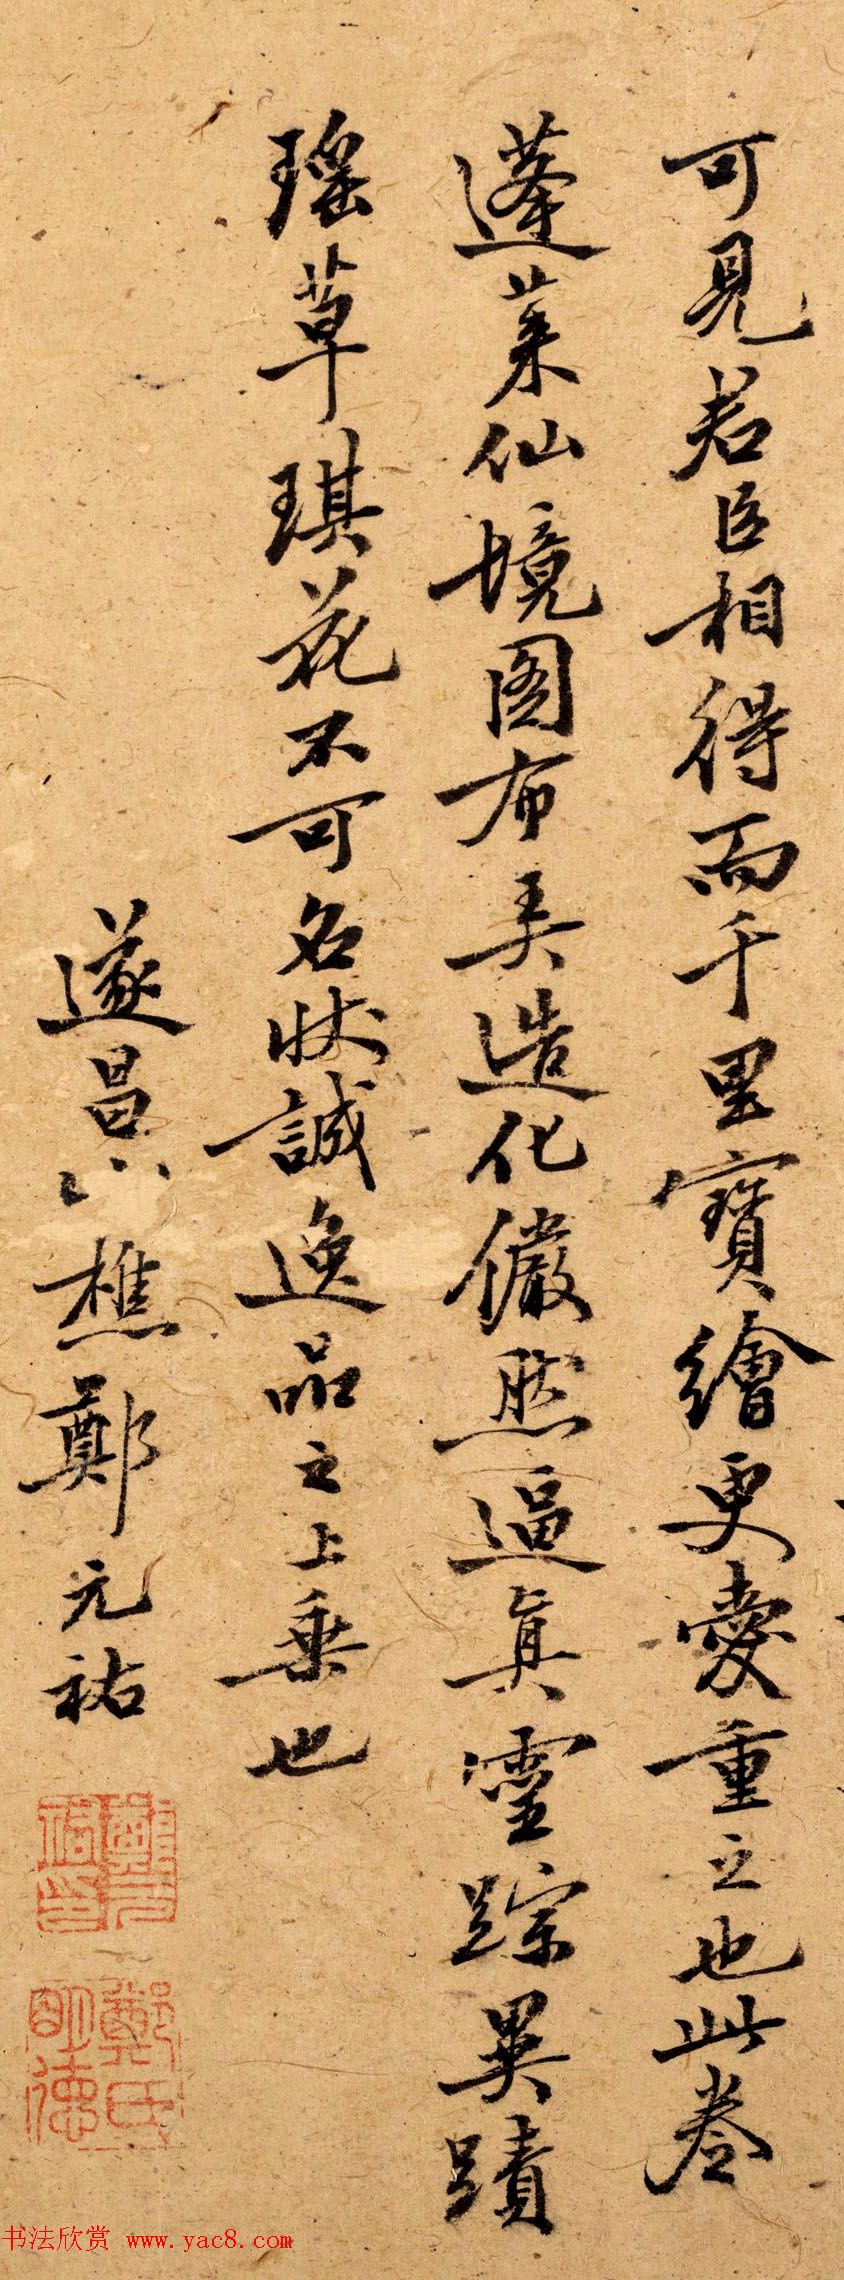 可見君臣相得而千里寶繪更愛重之也此卷
蓬萊仙境圖布美造化儼然逼真靈踪異蹟
瑶草琪花不可名狀誠逸品之上乗也
遂昌山樵鄭元祐
鄭元祐印
鄭氏明德
书法欣赏 www.yac8.com